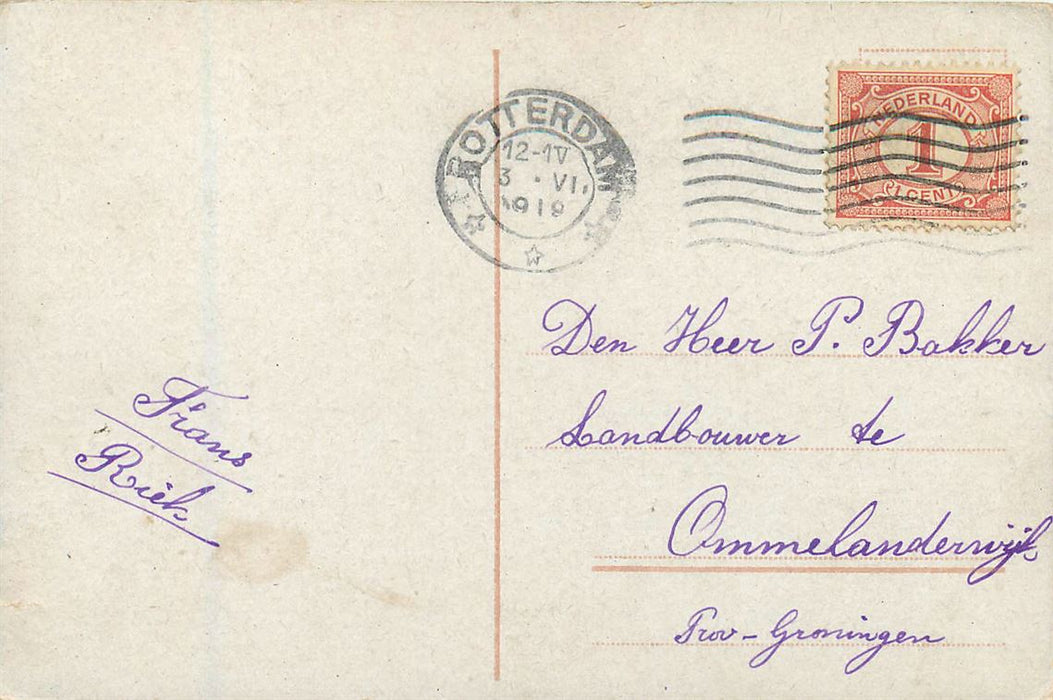 ROTTERDAM
12-IV
3 · VI
1919
NEDERLAND
1
1 CENT
Den Heer P. Bakker
Landbouwer te
Ommelanderwijk
Prov - Groningen
Frans
Riek